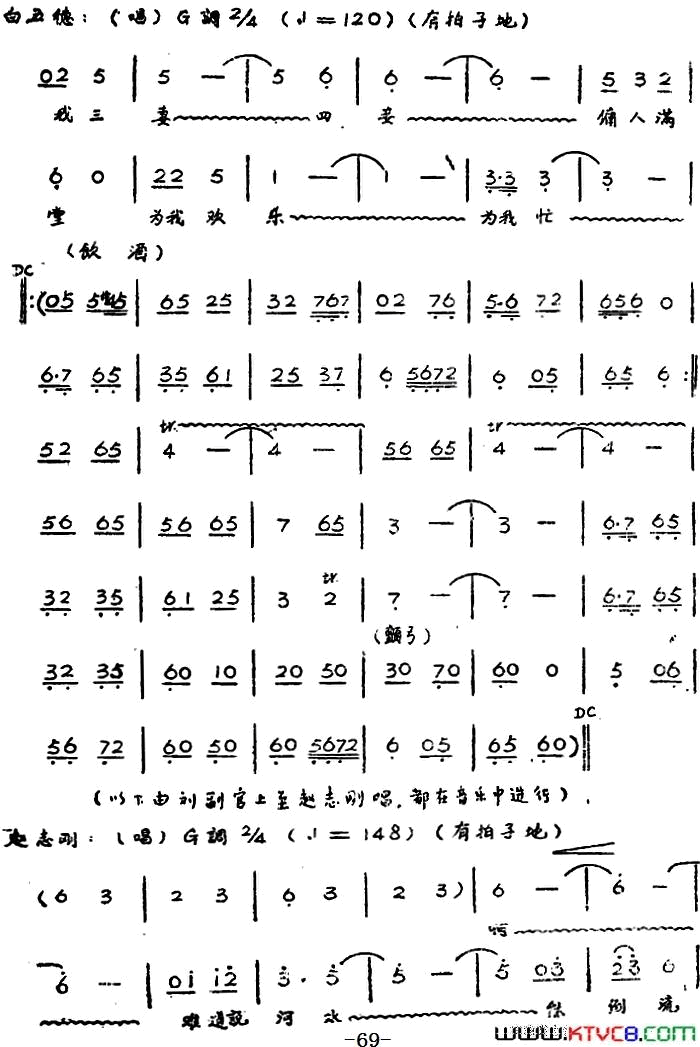 白五德：（唱）G調 2/4 （♩=120）（有拍子地）
02 5 | 5 — | 5 6 | 6 — | 6 — | 5 3 2 |
我三 妻 四 妾 傭人滿
6 0 | 22 5 | 1 — | 1 — | 3·3 3 | 3 — |
堂 为我 欢 乐 为我 忙
（飲酒）
DC
‖:(05 | 65 25 | 32 767 | 02 76 | 5·6 72 | 656 0 |
6·7 65 | 35 61 | 25 37 | 6 5672 | 6 05 | 65 6 :‖
tr tr
52 65 | 4 — | 4 — | 56 65 | 4 — | 4 — |
56 65 | 56 65 | 7 65 | 3 — | 3 — | 6·7 65 |
tr
32 35 | 61 25 | 3 2 | 7 — | 7 — | 6·7 65 |
（顫弓）
32 35 | 60 10 | 20 50 | 30 70 | 60 0 | 5 06 |
DC
56 72 | 60 50 | 60 5672 | 6 05 | 65 60)‖
（以下由刘副官上至赵志刚唱，都在音乐中进行）．
赵志刚：（唱）G調 2/4 （♩=148）（有拍子地）
(6 3 | 2 3 | 6 3 | 2 3) | 6 — | 6 — |
6 -- | 01 12 | 3· 5 | 5 — | 5 03 | 23 6 |
难道説 河 水 倒 流
-69-
www.KTVC8.com